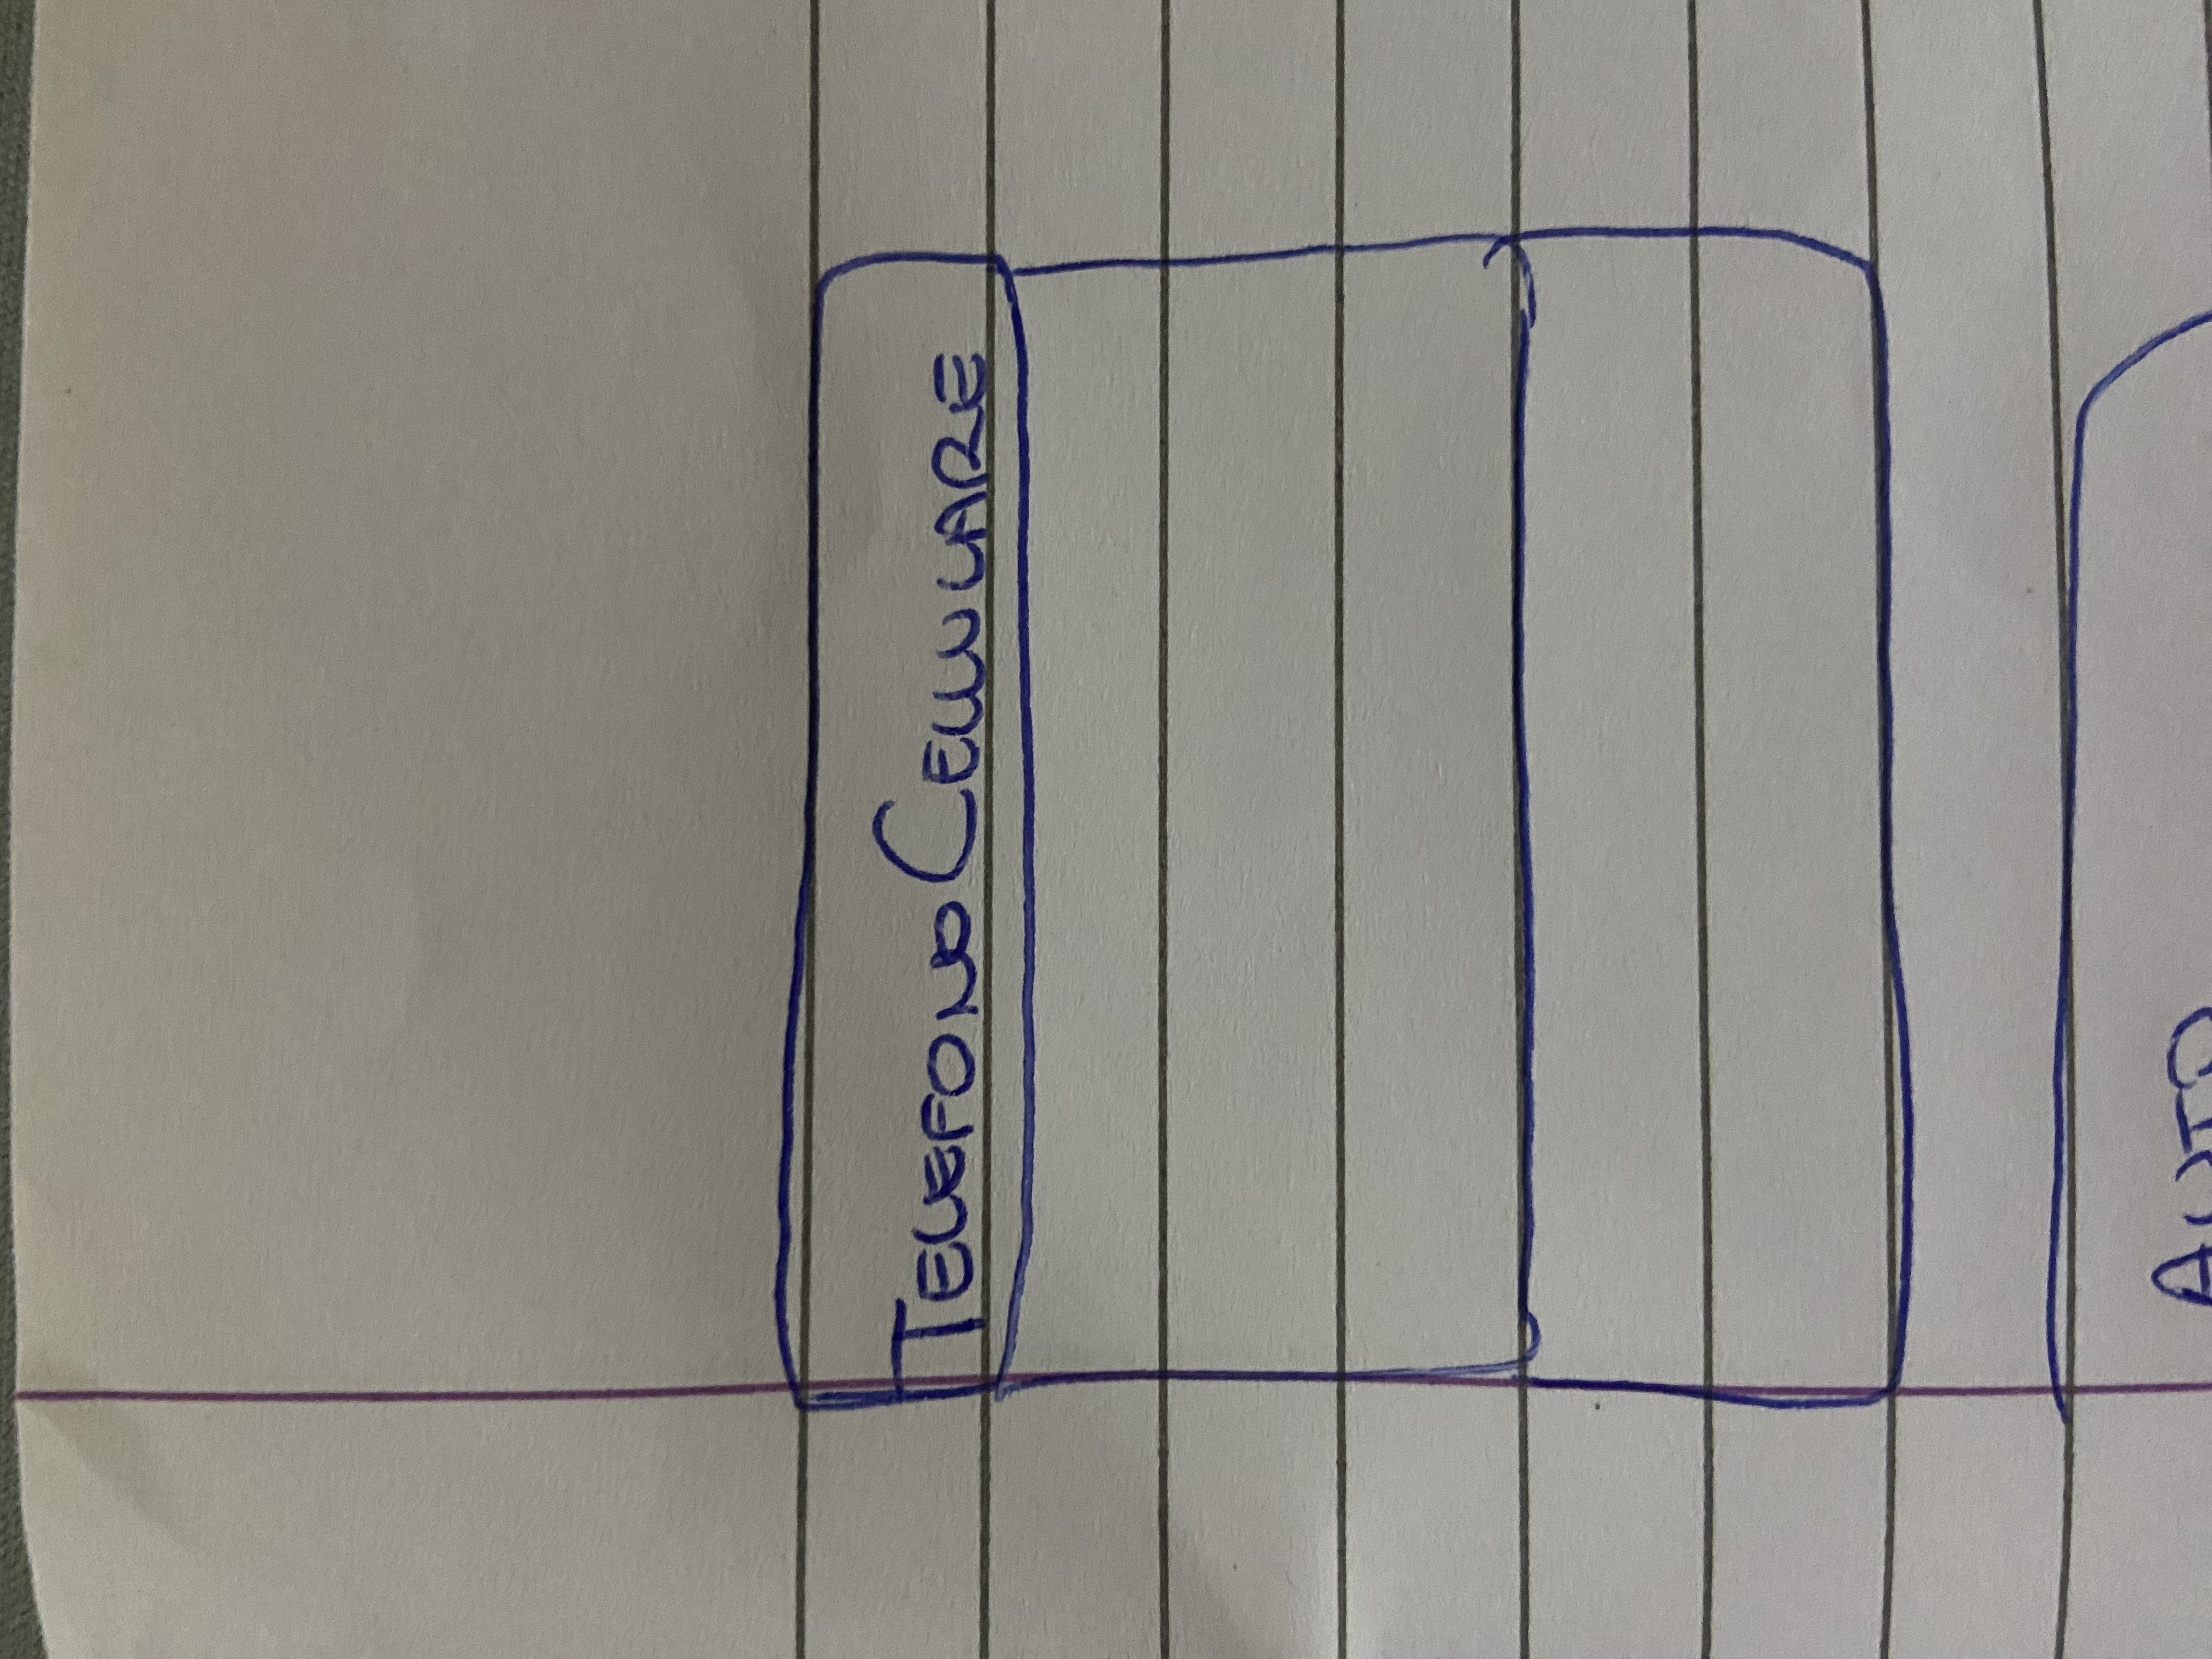 TELEFONO CELLULARE
AUTO